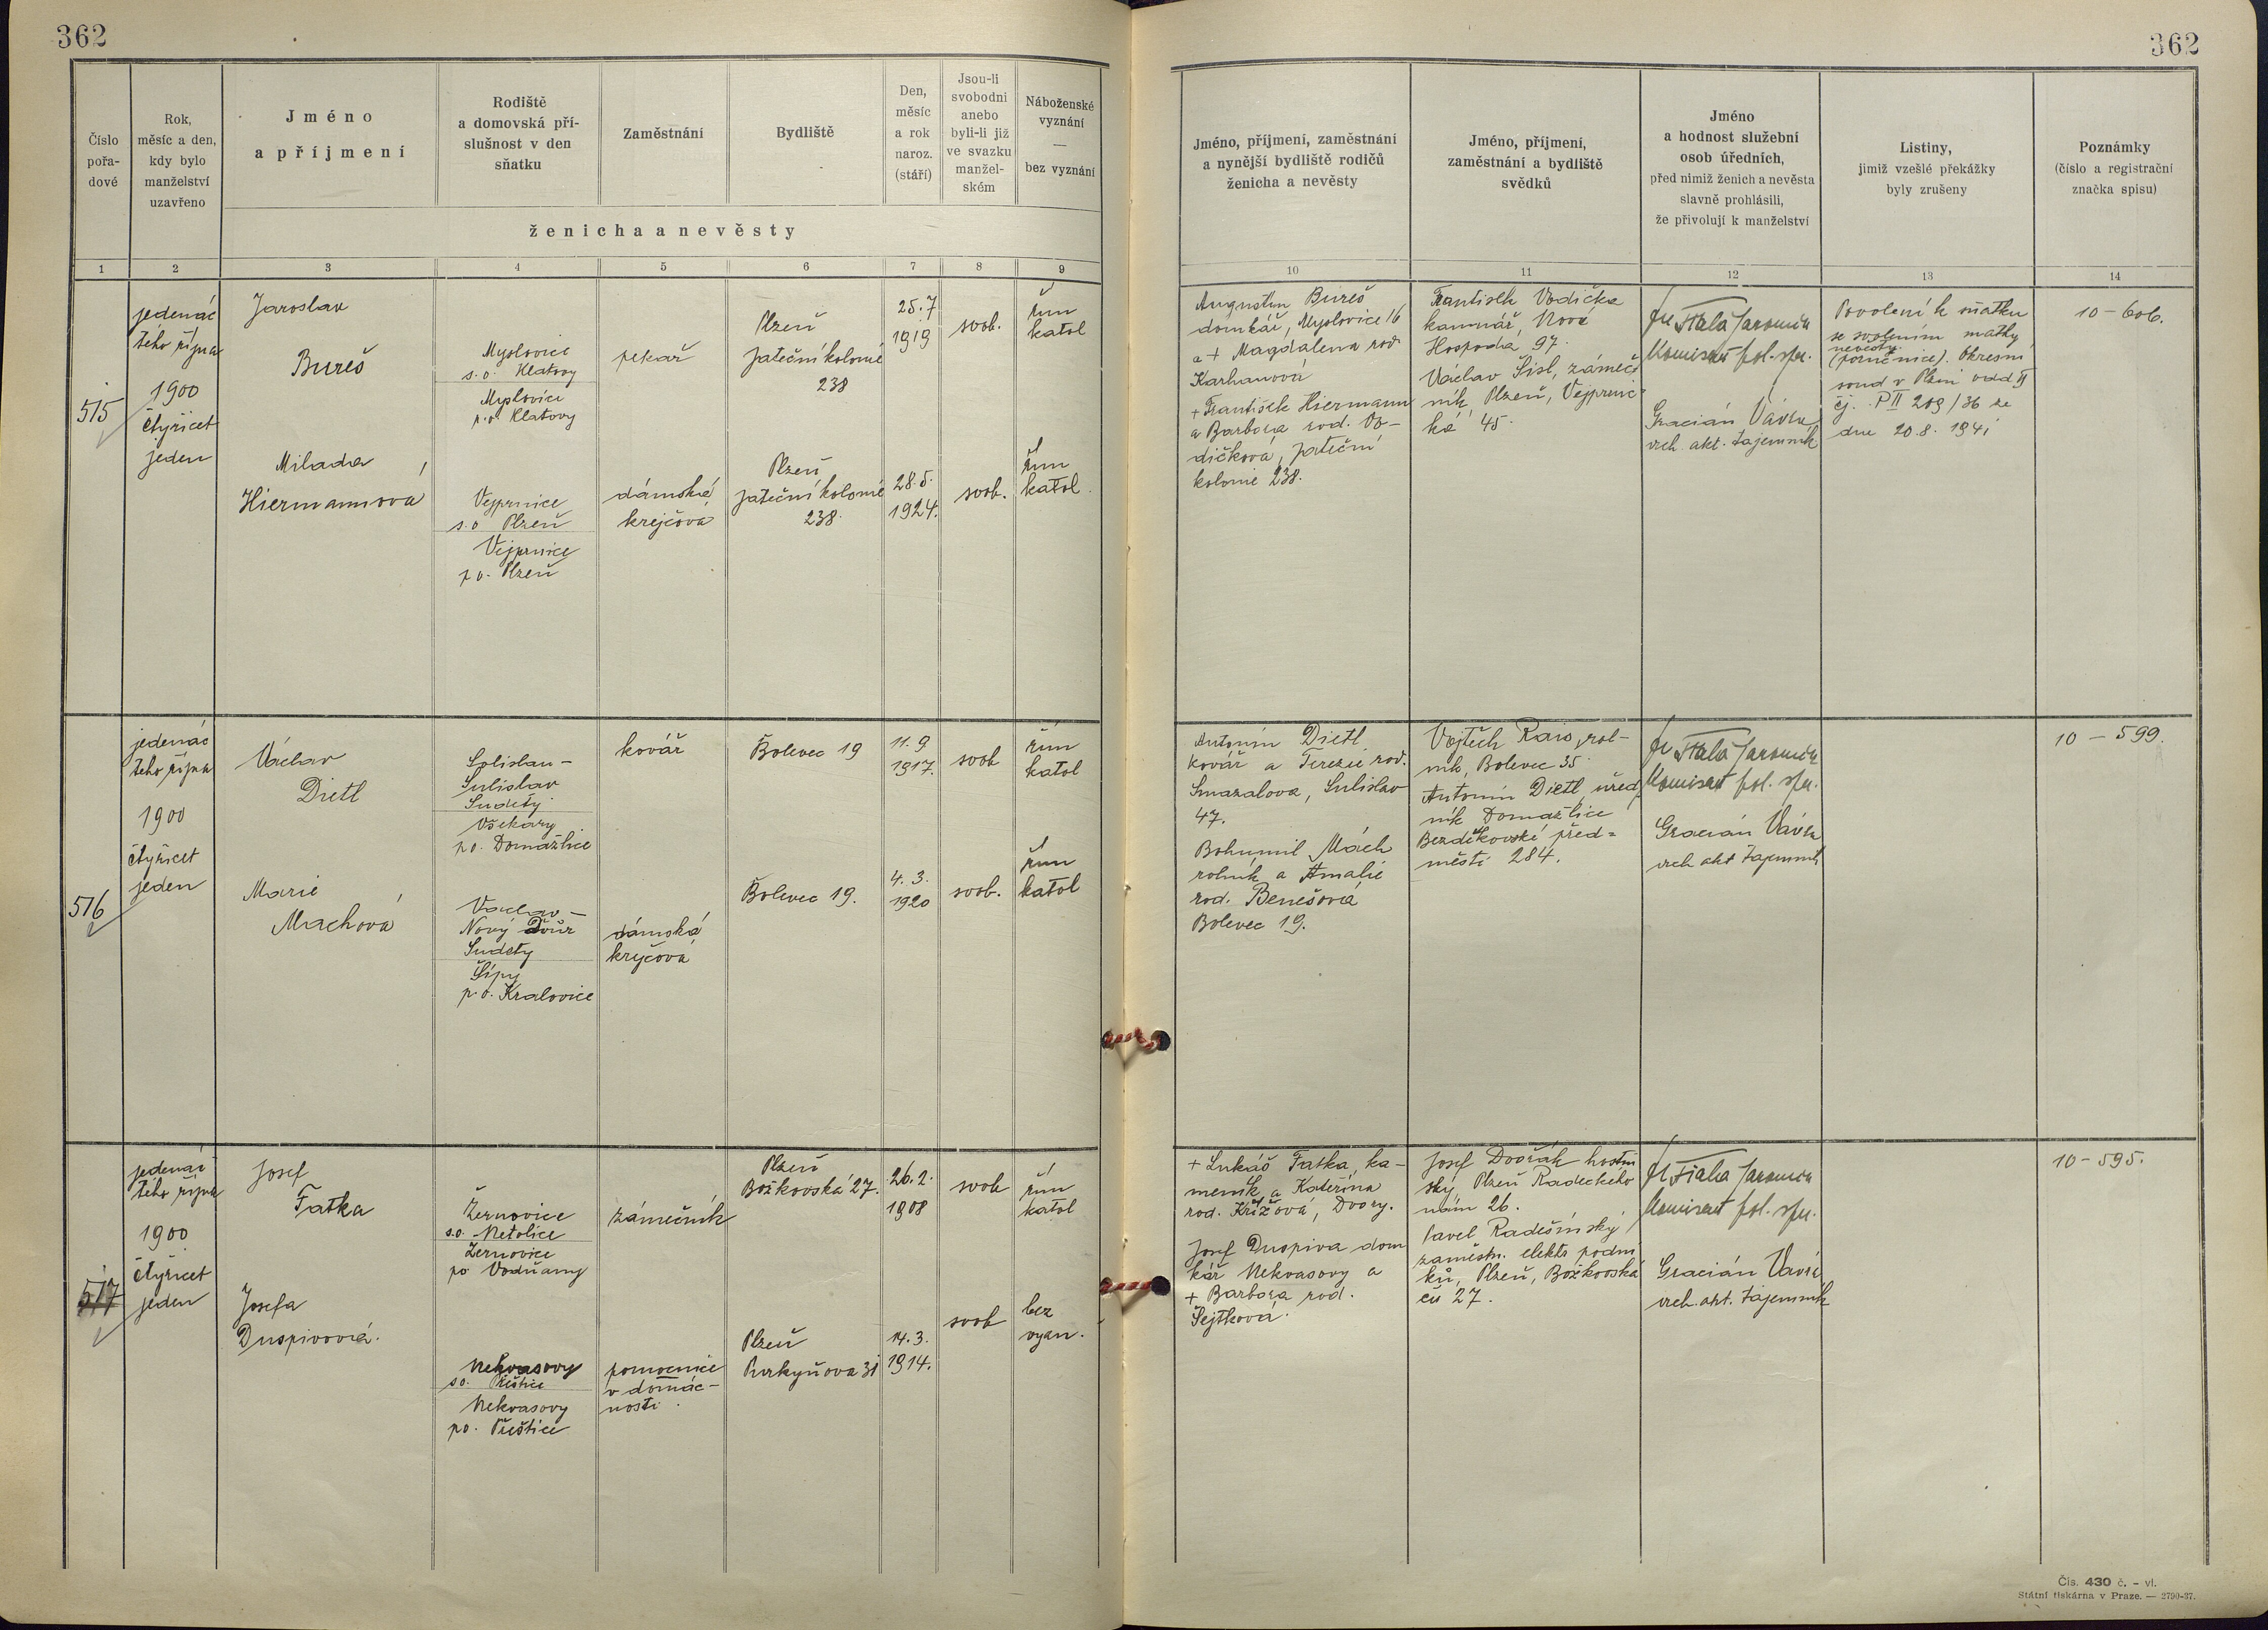 362
362
Číslo
pořa-
dové
Rok,
měsíc a den,
kdy bylo
manželství
uzavřeno
Jméno
a příjmení
Rodiště
a domovská pří-
slušnost v den
sňatku
Zaměstnání
Bydliště
Den,
měsíc
a rok
naroz.
(stáří)
Jsou-li
svobodni
anebo
byli-li již
ve svazku
manžel-
ském
Náboženské
vyznání
—
bez vyznání
ženicha a nevěsty
Jméno, příjmení, zaměstnání
a nynější bydliště rodičů
ženicha a nevěsty
Jméno, příjmení,
zaměstnání a bydliště
svědků
Jméno
a hodnost služební
osob úředních,
před nimiž ženich a nevěsta
slavně prohlásili,
že přivolují k manželství
Listiny,
jimiž vzešlé překážky
byly zrušeny
Poznámky
(číslo a registrační
značka spisu)
1 2 3 4 5 6 7 8 9
10 11 12 13 14
515
jedenác
tého října
1900
čtyřicet
jeden
Jaroslav
Bureš
Myslovice
s.o. Klatovy
Myslovice
p.o. Klatovy
pekař
Plzeň
Jateční kolonie
238
25.7
1919
svob.
řím
katol
Milada
Hiermannová
Vejprnice
s.o Plzeň
Vejprnice
p.o. Plzeň
dámská
krejčová
Plzeň
Jateční kolonie
238.
28.5.
1924.
svob.
řím
katol.
Augustin Bureš
domkář, Myslovice 16
a + Magdalena rod.
Karhanová
+ František Hiermann
a Barbora rod. Vo-
dičková, Jateční
kolonie 238.
František Vodička
kamnář, Nová
Hospoda 97.
Václav Šisl, zámeč
ník, Plzeň, Vejprnic
ká 45.
Fiala Jaromír
Komisař pol. spr.
Gracián Vávra
vrch. akt. tajemník
Povolení k sňatku
se svolením matky
nevěsty
(poručnice). Okresní
soud v Plzni odd II
čj. P II 209/36 ze
dne 20.8.1941
10-606.
516
jedenác
tého října
1900
čtyřicet
jeden
Václav
Dietl
Solislau-
Sulislav
Sudety
Všekary
p.o. Domažlice
kovář
Bolevec 19
11.9
1917.
svob
řím
katol
Marie
Machová
Nový Dvůr
Sudety
Šípy
p.o. Kralovice
dámská
krejčová
Bolevec 19.
4.3.
1920
svob.
řím
katol
Antonín Dietl
kovář a Terezie rod.
Smazalova, Sulislav
47.
Bohumil Mách
rolník a Amalie
rod. Benešová
Bolevec 19.
Vojtěch Rais, rol-
ník, Bolevec 35
Antonín Dietl, úřed
ník Domažlice
Bezděkovské před=
městí 284.
Fiala Jaromír
Komisař pol. spr.
Gracián Vávra
vrch. akt. tajemník
10-599.
517
jedenác
tého října
1900
čtyřicet
jeden
Josef
Fatka
Žernovice
s.o. Netolice
Žernovice
po Vodňany
zámečník
Plzeň
Božkovská 27.
26.2.
1908
svob
řím
katol
Josefa
Duspivová.
Nekvasovy
so. Přeštice
Nekvasovy
po. Přeštice
pomocnice
v domác-
nosti.
Plzeň
Purkyňova 31
14.3.
1914.
svob
bez
vyzn.
+ Lukáš Fatka, ka-
meník a Kateřina
rod. Křížová, Dvory.
Josef Duspiva dom
kář Nekvasovy a
+ Barbora rod.
Šejtková.
Josef Dvořák hostin
ský Plzeň Radeckého
nám 26.
Pavel Radešínský
zaměstn. elektr podni
ků, Plzeň, Božkovská
čís 27.
Fiala Jaromír
Komisař pol. spr.
Gracián Vávra
vrch. akt. tajemník
10-595.
Čís. 430 č. - vl.
Státní tiskárna v Praze. — 2790-37.